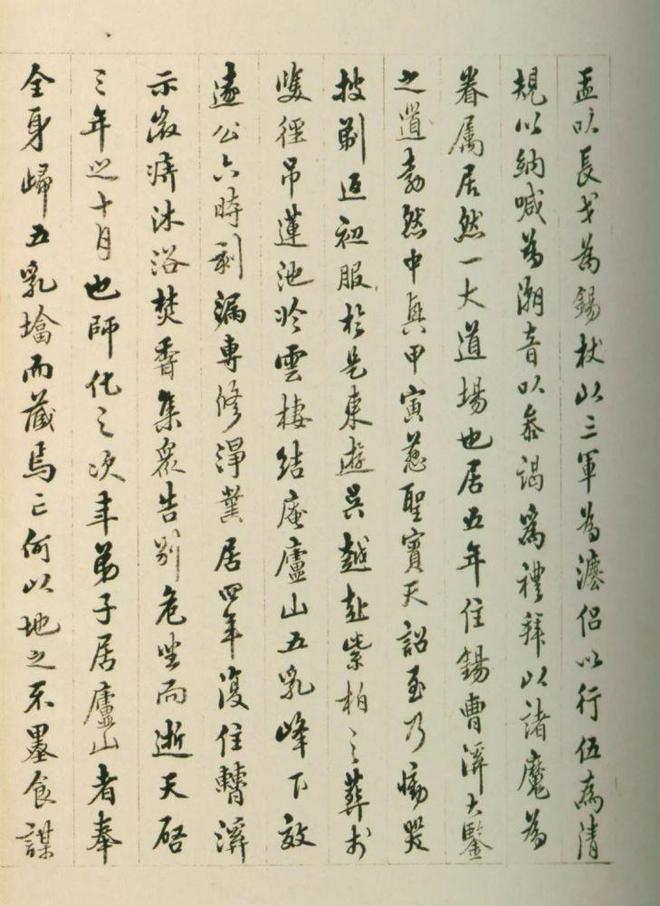 盂以長戈為錫杖以三軍為法侶以行伍為清
規以納喊為潮音以參謁為禮拜以諸魔為
眷屬居然一大道場也居五年住錫曹溪大鑒
之道勃然中興甲寅慈聖賓天詔至乃慟哭
披剃返初服於是東遊吳越赴紫柏之葬於
雙徑吊蓮池於雲棲結庵廬山五乳峰下效
遠公六時刻漏專修淨業居四年復住曹溪
示微疾沐浴焚香集衆告別危坐而逝天啓
三年之十月也師化之次年弟子居廬山者奉
全身歸五乳塔而藏焉亡何以地之不墨食謀